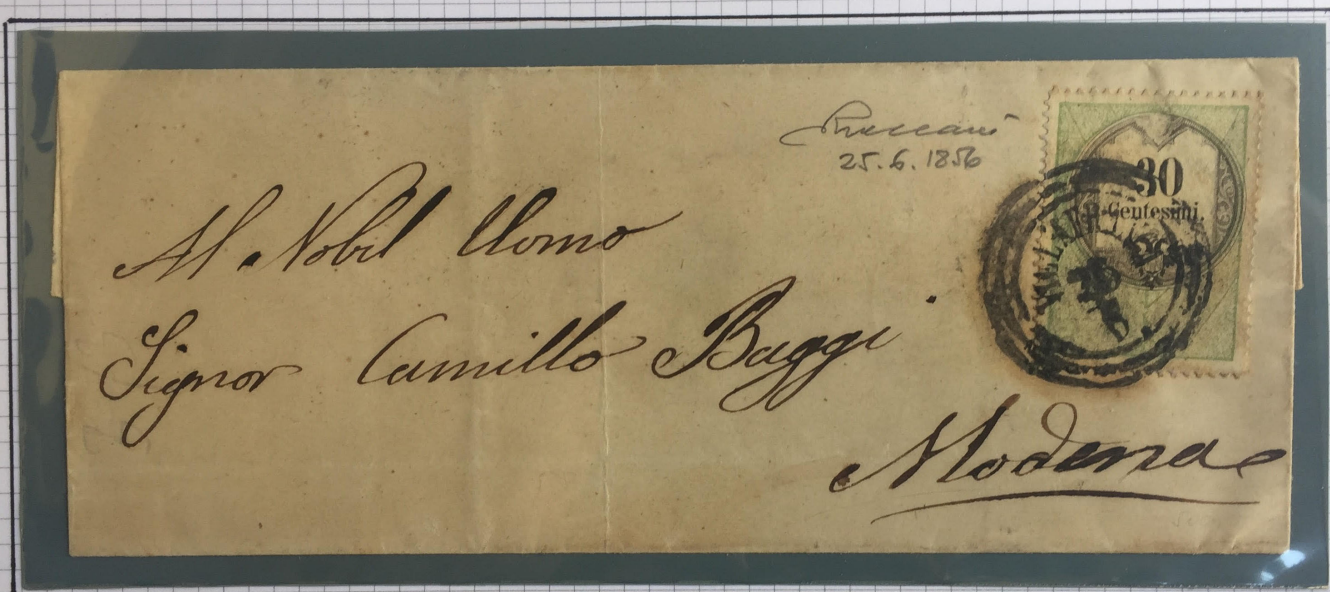 25.6.1856
30
Centesimi.
Al Nobil Uomo
Signor Camillo Baggi
Modena